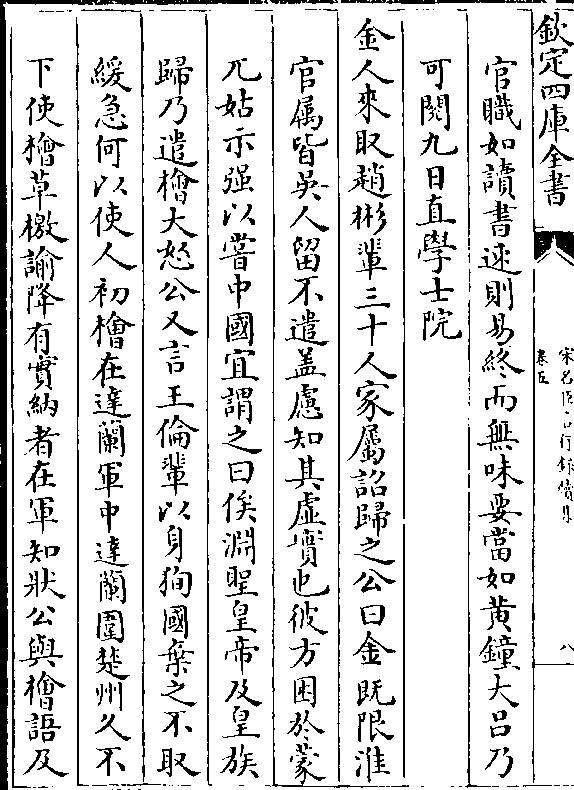 欽定四庫全書
宋名臣言行録續集
卷五
八
官職如讀書速則易終而無味要當如黄鐘大吕乃
可閱九日直學士院
金人來取趙彬輩三十人家屬詔歸之公曰金既限淮
官屬皆吳人留不遣盖慮知其虛實也彼方困於蒙
兀姑示强以嘗中國宜謂之曰俟淵聖皇帝及皇族
歸乃遣檜大怒公又言王倫輩以身狥國棄之不取
緩急何以使人初檜在達蘭軍中達蘭圍楚州久不
下使檜草檄諭降有實納者在軍知狀公與檜語及